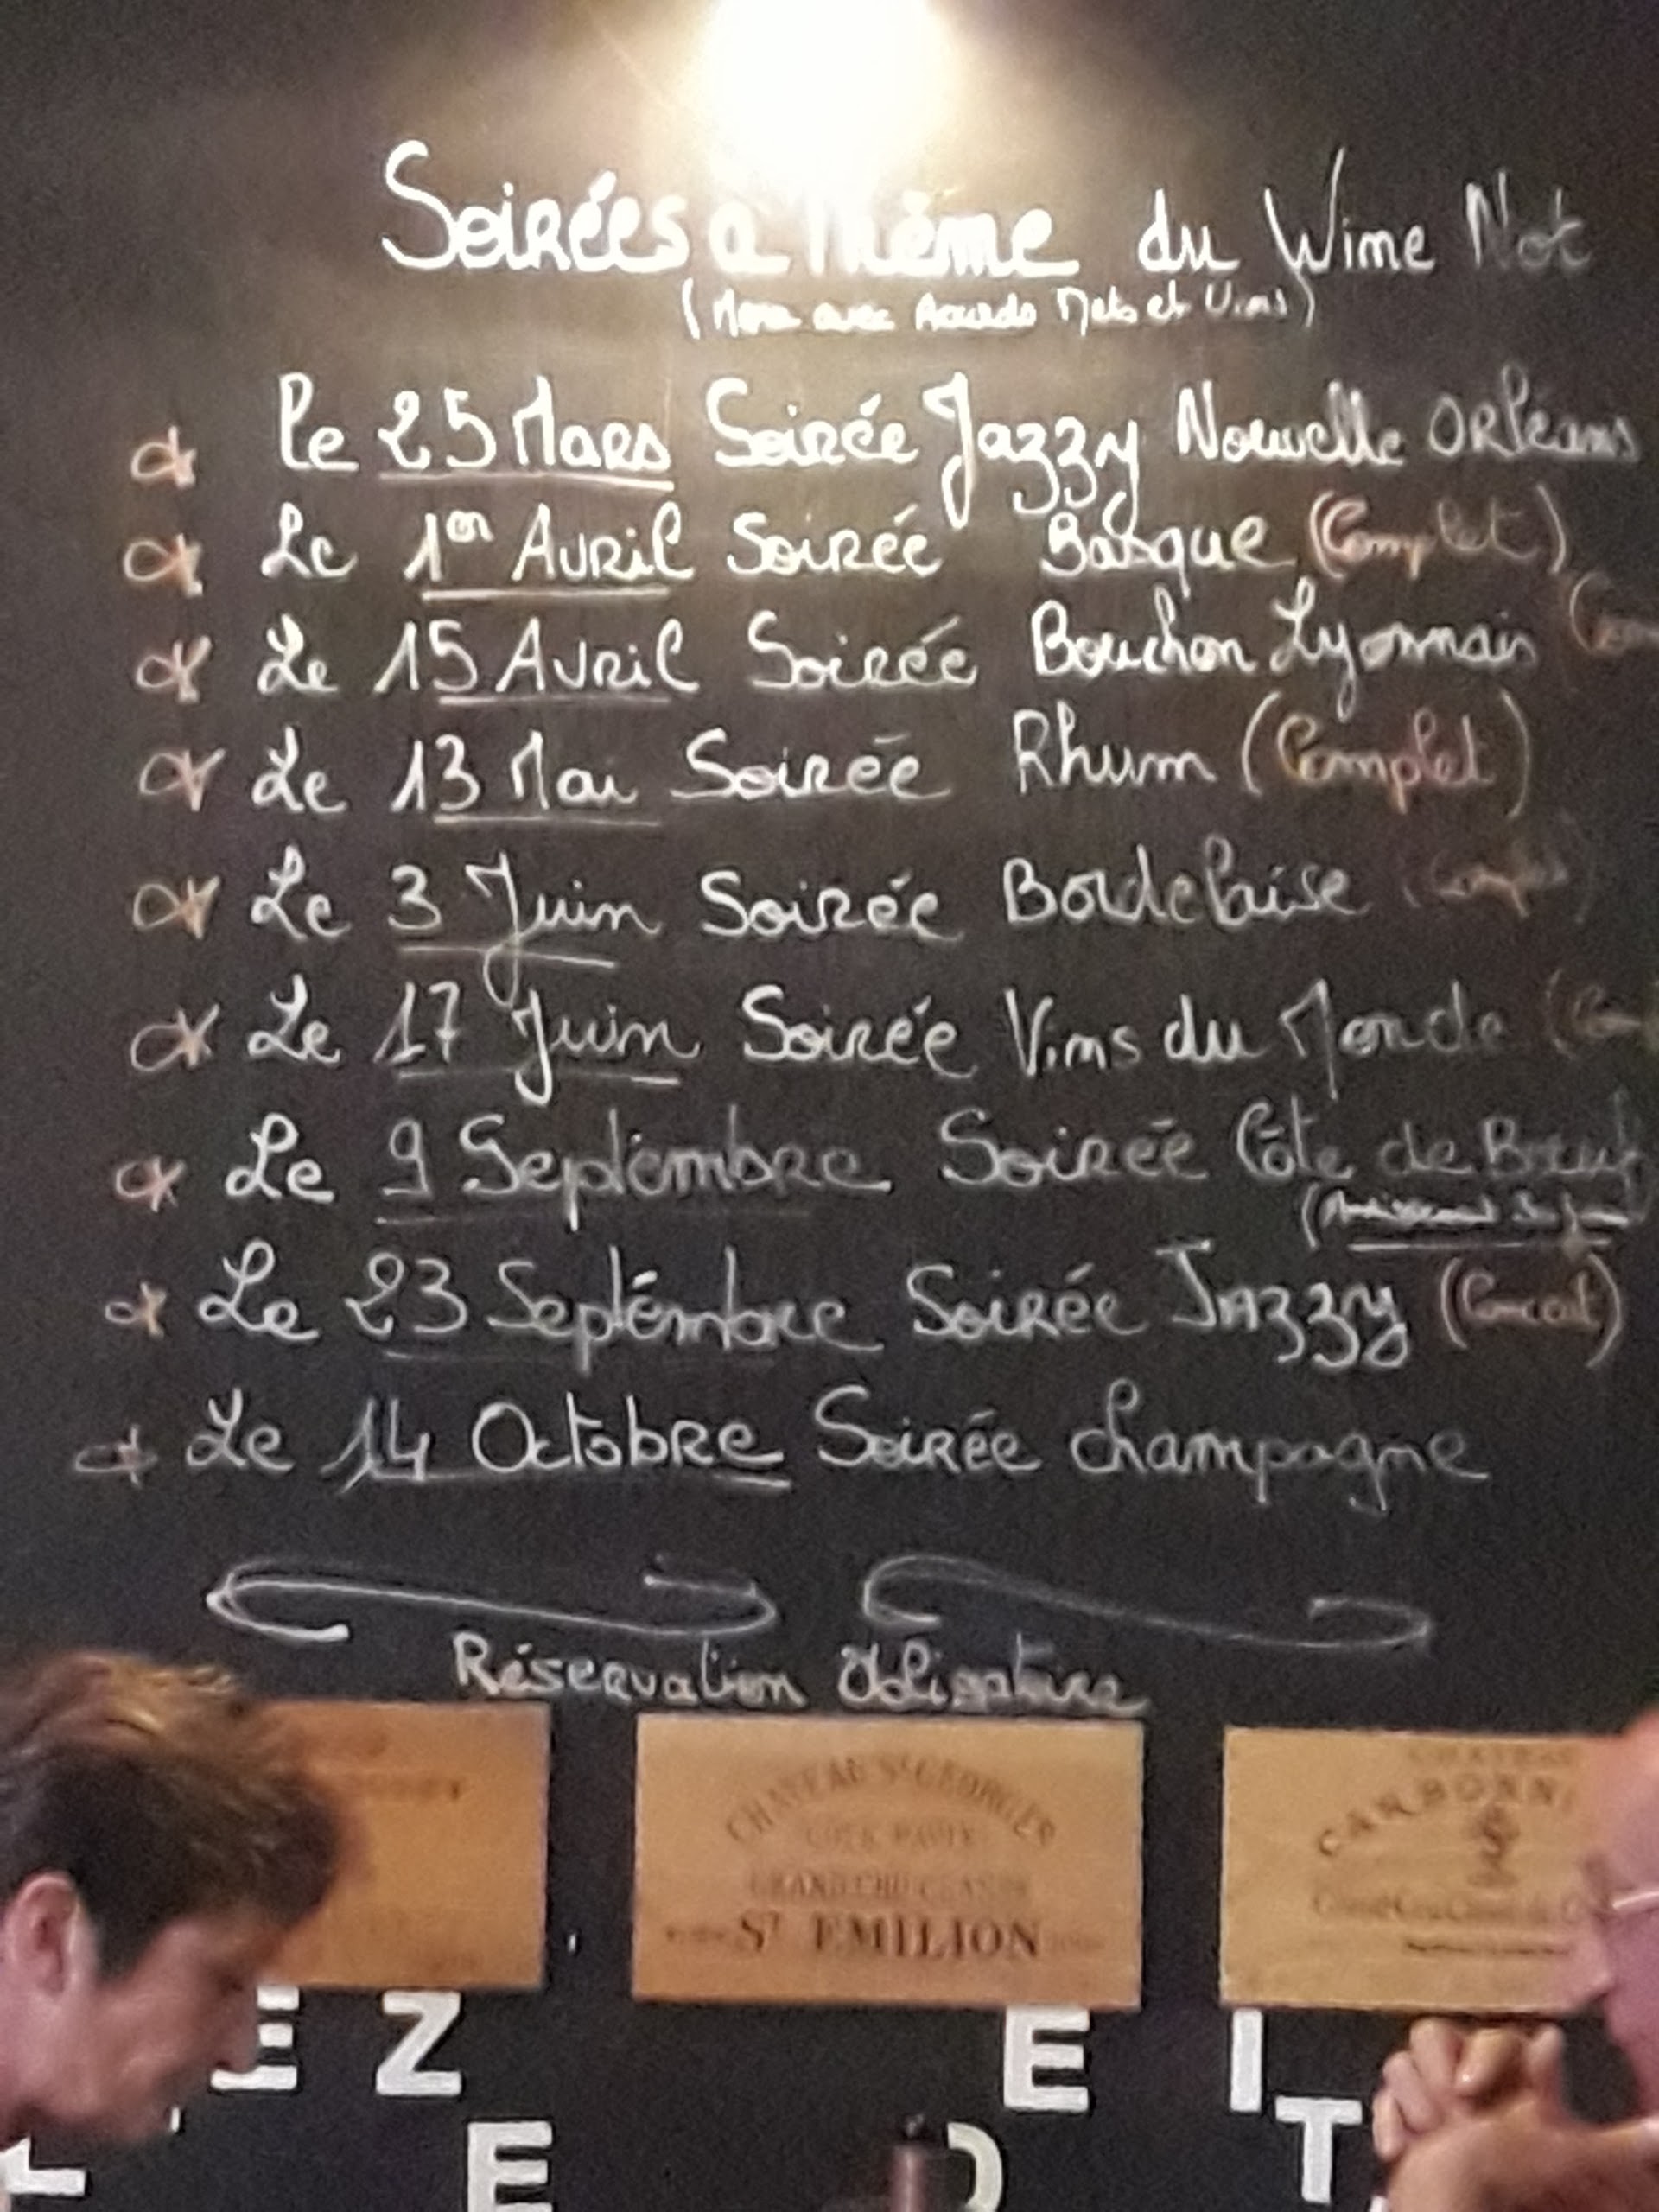 Soirées a Thême du Wine Not
(Menu avec Accords Mets et Vins)
Le 25 Mars Soirée Jazzy Nouvelle Orléans
Le 1er Avril Soirée Basque (Complet)
Le 15 Avril Soirée Bouchon Lyonnais (Com
Le 13 Mai Soirée Rhum (Complet)
Le 3 Juin Soirée Bordelaise (Complet)
Le 17 Juin Soirée Vins du Monde (Com
Le 9 Septembre Soirée Côte de Boeuf
Le 23 Septembre Soirée Jazzy (Concert)
Le 14 Octobre Soirée Champagne
Réservation Obligatoire
CHATEAU St GEORGES
COTE PAVIE
GRAND CRU CLASSÉ
ST EMILION
CHATEAU
CARBONNI
Grand Cru Classé de G
E Z E I
E O T